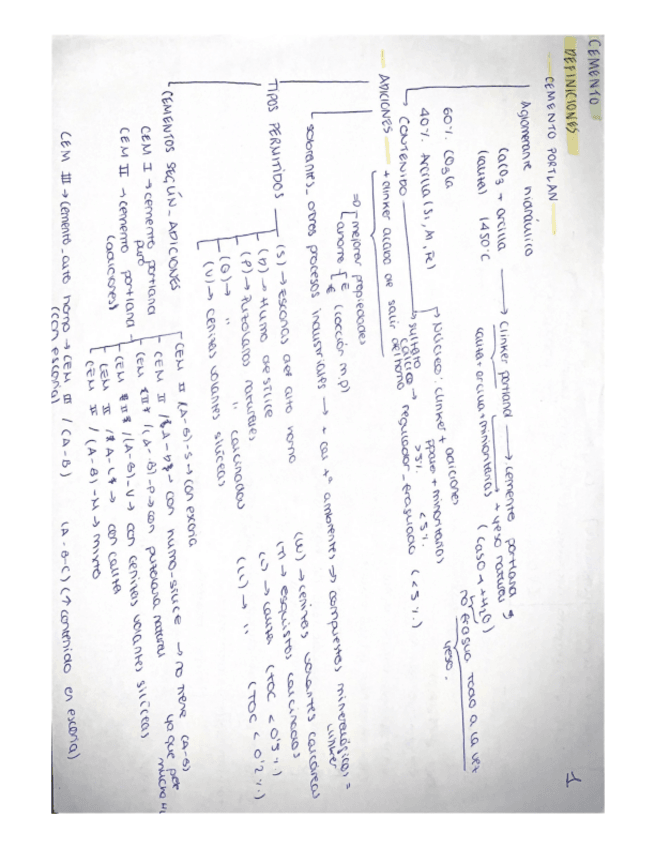 CEMENTO
DEFINICIONES
CEMENTO PORTLAN
Aglomerante hidráulico
CaCO3 + arcilla → Clinker portland → cemento portland y
(caliza) 1450°C caliza + arcilla + minoritarios + yeso natural
(CaSO4 + H2O)
no fragua todo a la vez
yeso.
60% CO3Ca
40% Arcilla (Si, Al, Fe)
→ CONTENIDO → Núcleo: clinker + adiciones
+ minoritarios
< 5%
→ sulfato cálcico → regulador fraguado (< 5%)
ADICIONES + clinker acaba de salir del horno
=> mejorar propiedades
ahorro € (cocción m.p)
sobrantes otros procesos industriales → + cal + tª ambiente → compuestos mineralógicos =
clinker
TIPOS PERMITIDOS
(S) → Escorias de alto horno
(D) → Humo de sílice
(P) → Puzolanas naturales
(Q) → " " calcinadas
(V) → cenizas volantes silíceas
(W) → cenizas volantes calcáreas
(T) → esquistos calcinados
(L) → caliza (TOC < 0'5%)
(LL) → " (TOC < 0'2%)
CEMENTOS SEGÚN ADICIONES
CEM I → cemento portland
puro
CEM II → cemento portland
(adiciones)
CEM II / (A-B)-S → con escoria
CEM II / A-D → con humo sílice → no tiene (A-B)
ya que pide
mucha
CEM II / (A-B)-P → con puzolana natural
CEM II / (A-B)-V → con cenizas volantes silíceas
CEM II / A-L → con caliza
CEM II / (A-B)-M → mixto
CEM III → cemento alto horno → CEM III / (A-B) (A-B-C) (↑ contenido en escoria)
(con escoria)
1